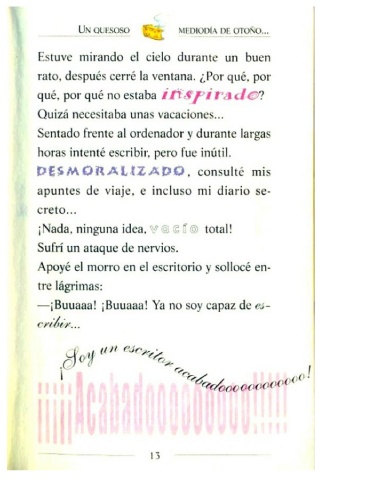 UN QUESOSO MEDIODÍA DE OTOÑO...
Estuve mirando el cielo durante un buen
rato, después cerré la ventana. ¿Por qué, por
qué, por qué no estaba inspirado?
Quizá necesitaba unas vacaciones...
Sentado frente al ordenador y durante largas
horas intenté escribir, pero fue inútil.
DESMORALIZADO, consulté mis
apuntes de viaje, e incluso mi diario se-
creto...
¡Nada, ninguna idea, vacío total!
Sufrí un ataque de nervios.
Apoyé el morro en el escritorio y sollocé en-
tre lágrimas:
—¡Buuaaa! ¡Buuaaa! Ya no soy capaz de es-
cribir...
¡Soy un escritor acabadooooooooooo!
¡¡¡¡¡Acabadooooooooo!!!!!
13